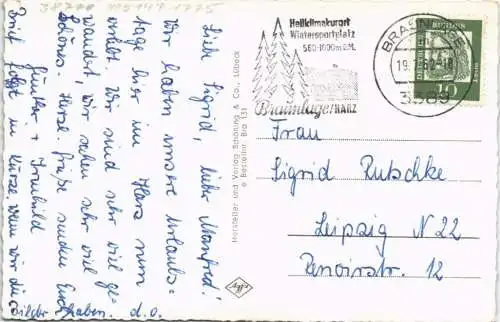 Liebe Sigrid, lieber Manfred!
Wir haben unsere Urlaubs-
tage hier im Harz nun
verlebt. Wir sind sehr viel ge-
wandert, wir sahen sehr viel
Schönes. Herzl. Grüße senden Euch
Günther + Irmhild
Brief folgt in Kürze. Wenn wir die
Bilder haben. d.o.
Hersteller und Verlag Schöning & Co., Lübeck
Bestellnr. Bra 131
Heilklimakurort
Wintersportplatz
560-1000m ü.M.
Braunlage HARZ
BRAUNLAGE
3389
DEUTSCHE
10
Frau
Sigrid Rutschke
Leipzig N 22
Renoirstr. 12